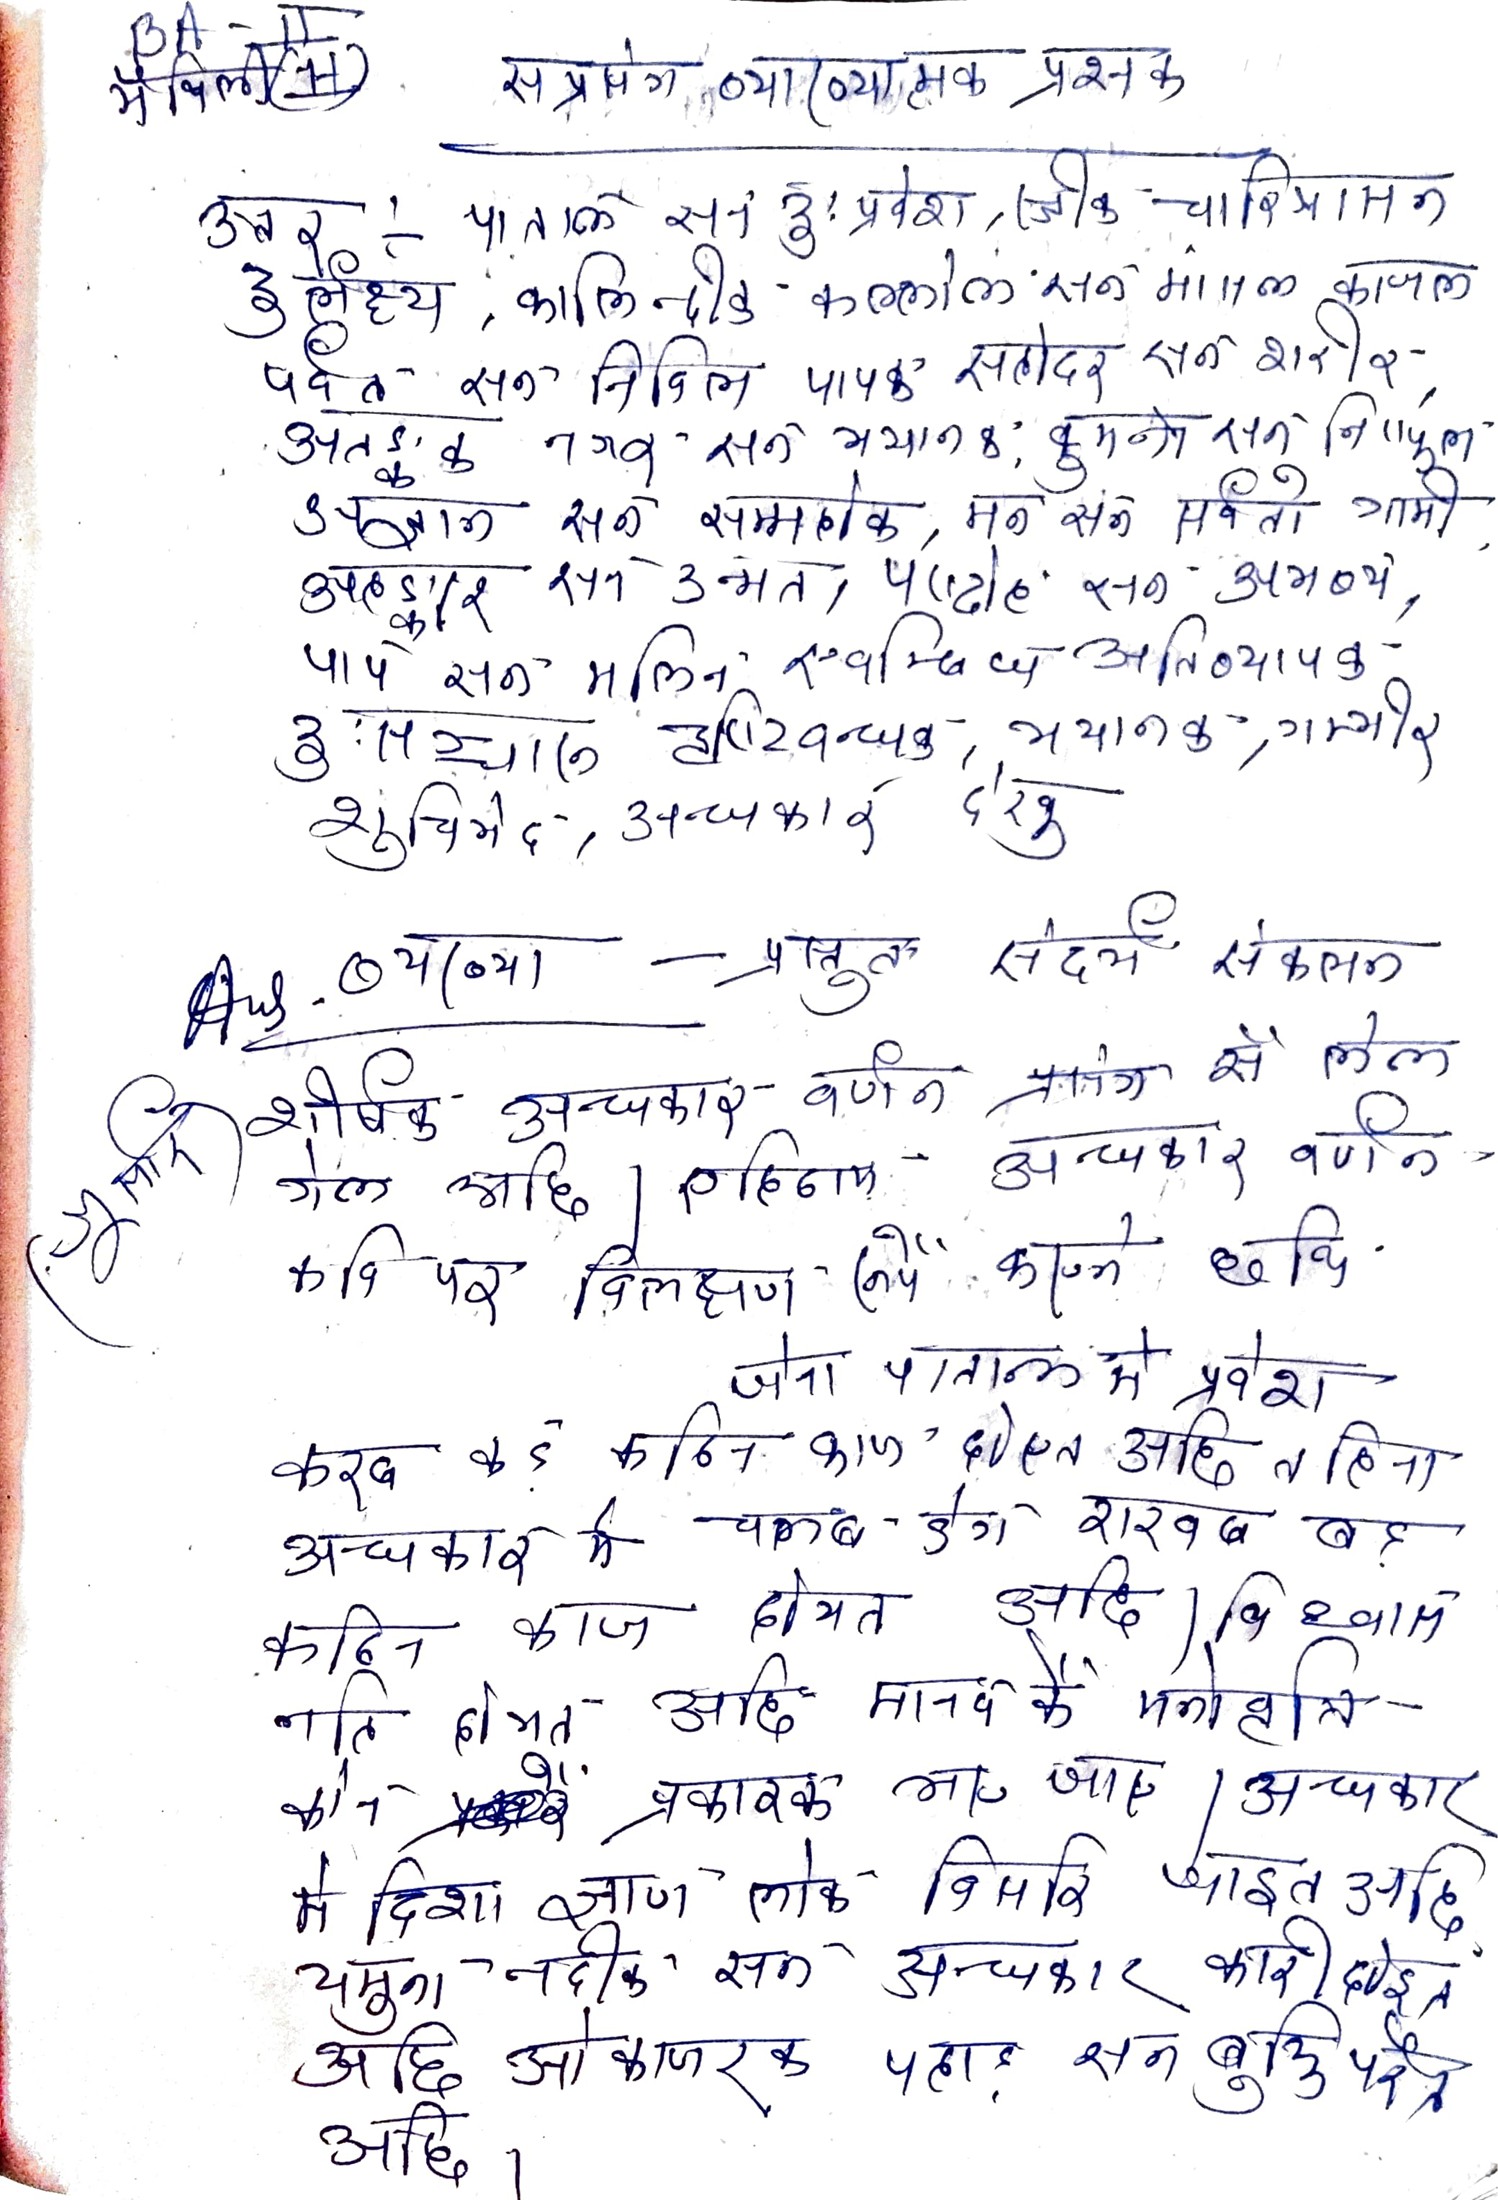 BA - II
मैथिली (H)
सप्रसंग व्याख्यात्मक प्रश्नक
उत्तर :- पाताल सन दुःप्रवेश, स्त्रीक चरित्र सन
दुर्लक्ष्य, कालिन्दीक कल्लोल सन मांसल काजल
पर्वत सन निविल पापक सहोदर सन शरीर,
आतङ्क नगर सन भयानक, कुमन्त्र सन निष्फल
अज्ञान सन सम्मोहक, मन सन सर्वतो गामी,
अहङ्कार सन उन्मत, परद्रोह सन अभव्य,
पाप सन मलिन अतिव्यापक
दुःसञ्चार दृष्टिबन्धक, भयानक, गम्भीर
शुचिभेद, अन्धकार देखु
Ans. व्यख्या — प्रस्तुत संदर्भ संकलन
शीर्षक अन्धकार वर्णन प्रसंग सँ लेल
गेल अछि। एहिठाम अन्धकार वर्णन
कवि पर विलक्षण रूपेँ कएने छथि
जेना पाताल मे प्रवेश
करब कड कठिन काज होएत अछि तहिना
अन्धकार मे चलब डेग राखब बड़
कठिन काज होयत अछि। विश्वास
नहि होयत अछि मानव कें मनोवृत्ति
कोन प्रकारक भए जाए। अन्धकार
मे दिशा ज्ञाण लोक विसरि जाइत अछि
यमुना नदीक सन अन्धकार कारी होइत
अछि ओ काजरक पहाड़ सन बुझि पड़ैत
अछि।